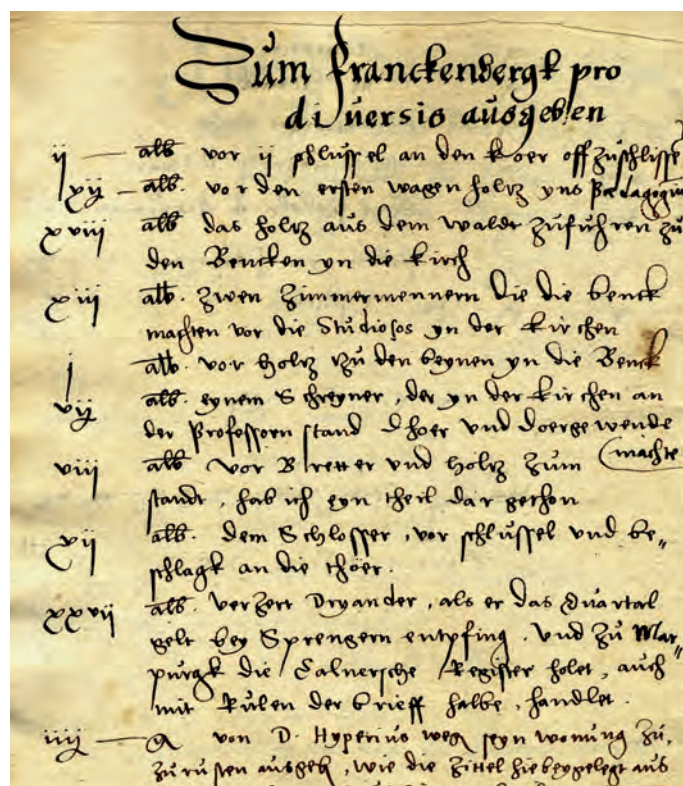 Zum Franckenbergk pro
diuersis ausgeben
ij — alb vor ij schlussel an den Koer off zuschlisse
xij — alb. vor den ersten wagen holtz yns Pædagogiu
xviij alb das holtz aus dem waldt zufuhren zu
den Bencken yn die Kirch
xiij alb. zwen Zimmermennern die die benck
machten vor die Studiosos yn der Kirchen
j alb. vor holtz zu den beynen yn die Benck
vij alb. eynem Schreyner, der yn der Kirchen an
der Professorn stand Dhoer vnd doergewende
machte
viij alb vor Bretter vnd holtz zum
standt, hab ich eyn theil dar gethon
xij alb. dem Schlosser, vor schlussel vnd be„
schlagk an die thöer.
xxvij alb. verzert Dryander, als er das Quartal
gelt bey Sprengern entpfing. Vnd zu Mar„
purgk die Calnersche Register holet, auch
mit Rulen der brieff halbe, handlet.
iiij — von D. Hyperius weg seyn wonung zu.
zu rusten ausgeb, wie die Zittel hiebeygelegt aus